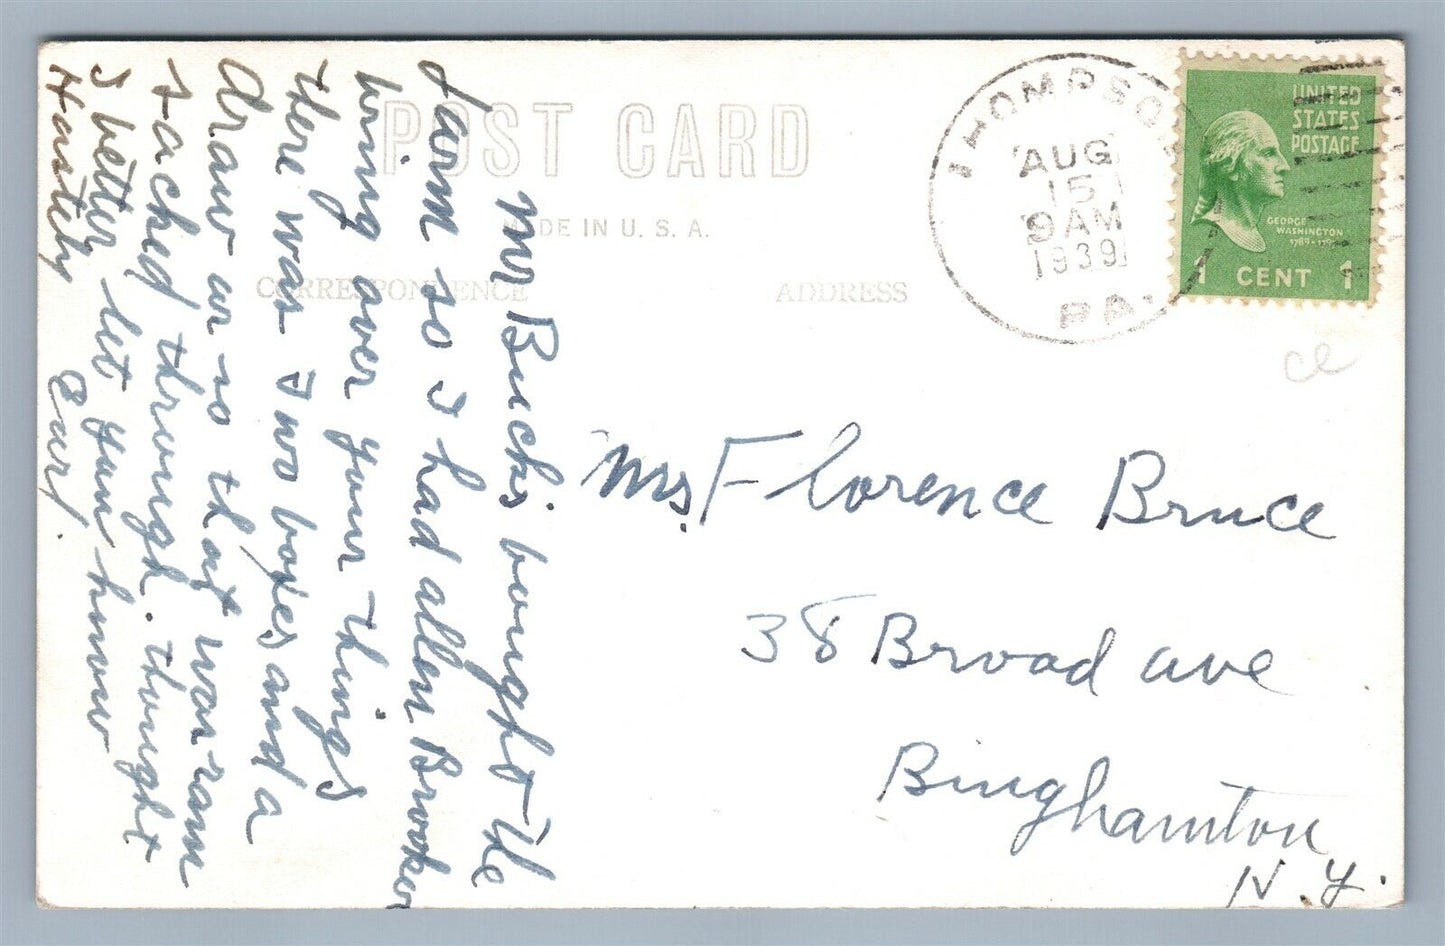 POST CARD
MADE IN U. S. A.
CORRESPONDENCE
ADDRESS
THOMPSON
AUG
15
9 AM
1939
PA.
UNITED
STATES
POSTAGE
GEORGE
WASHINGTON
1789-1797
1 CENT 1
ce
Mrs. Florence Bruce
38 Broad ave
Binghamton
N.Y.
Mr Buck's bought the
farm so I had allen Brooker
bring over your things
there was two boxes and a
draw ar so that was ram
sacked through. thought
I better let you know
Hastily
Earl.